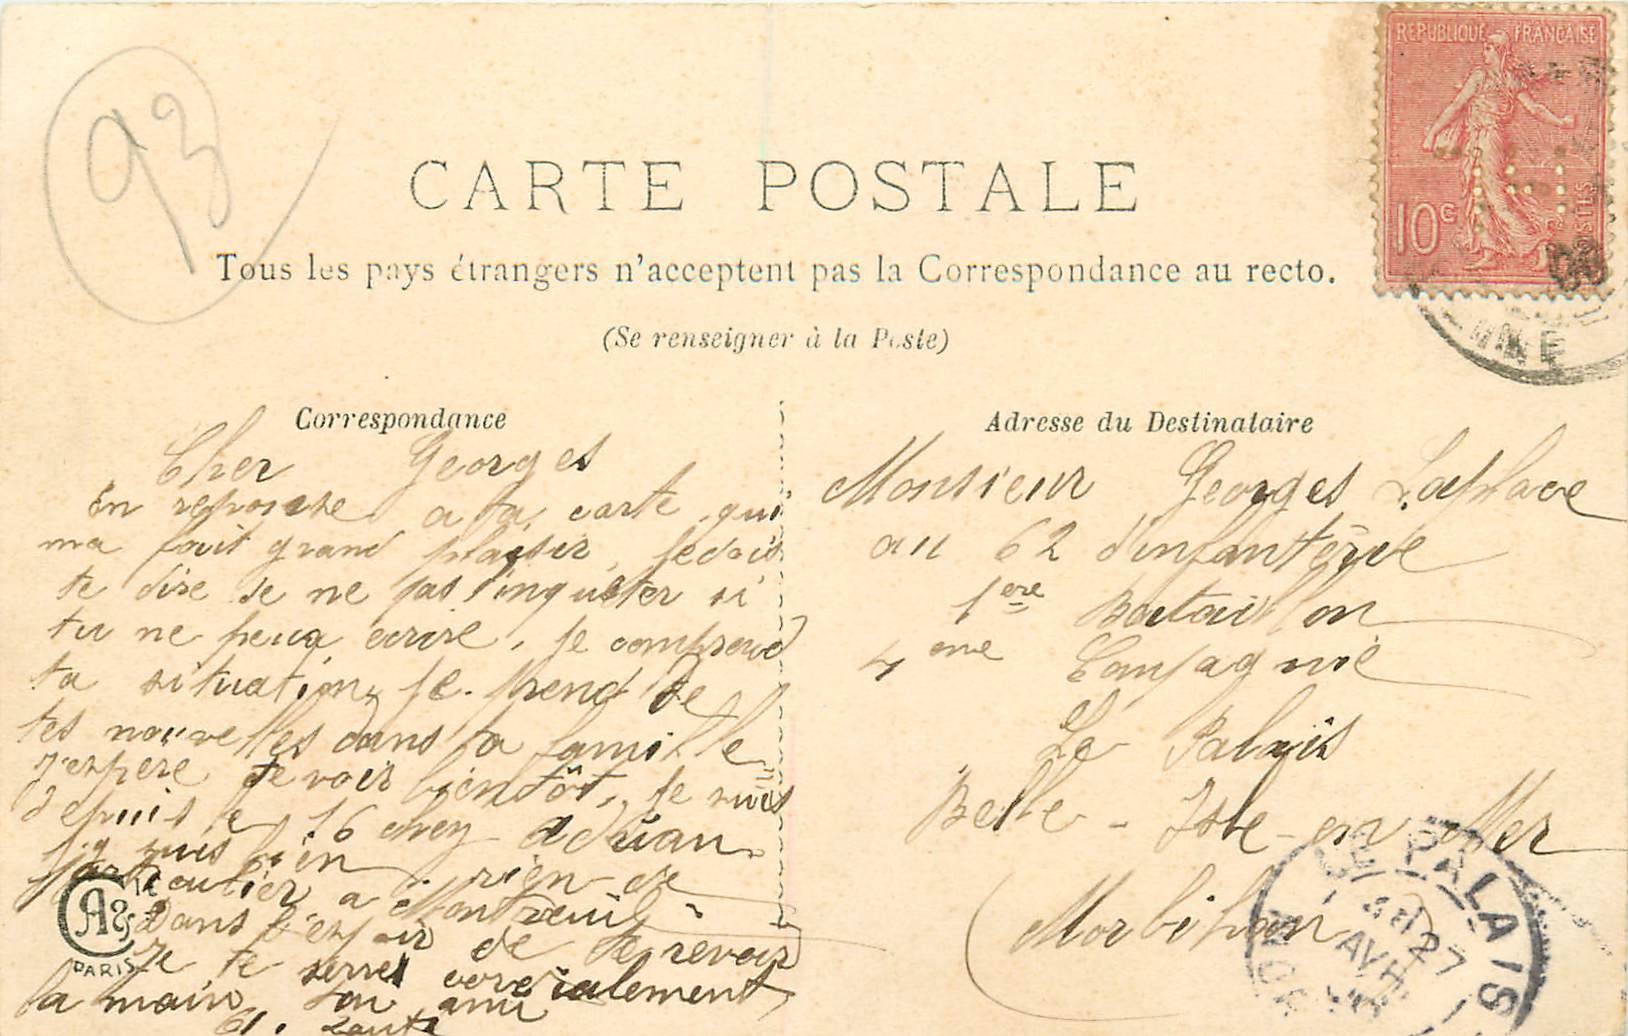 93
REPUBLIQUE FRANÇAISE
10c
POSTES
CARTE POSTALE
Tous les pays étrangers n'acceptent pas la Correspondance au recto.
(Se renseigner à la Poste)
Correspondance
Cher Georges
En reponse a ta carte qui
ma fait grand plaisir, je dois
te dire de ne pas t'inquieter si
tu ne peux ecrire, je comprend
ta situation, je prend de
tes nouvelles dans ta famille
J'espère te voir bientôt, je suis
depuis le 16 chez
j'y suis bien rien de
particulier a Montreuil
Dans l'espoir de te revoir
Je te serre cordialement
la main ton ami
Adresse du Destinataire
Monsieur Georges Laplace
au 62 d'infanterie
1ere Bataillon
4eme Compagnie
Le Palais
Belle-Isle-en Mer
(Morbihan)
LE PALAIS
27
AVR
MOR
A&
PARIS